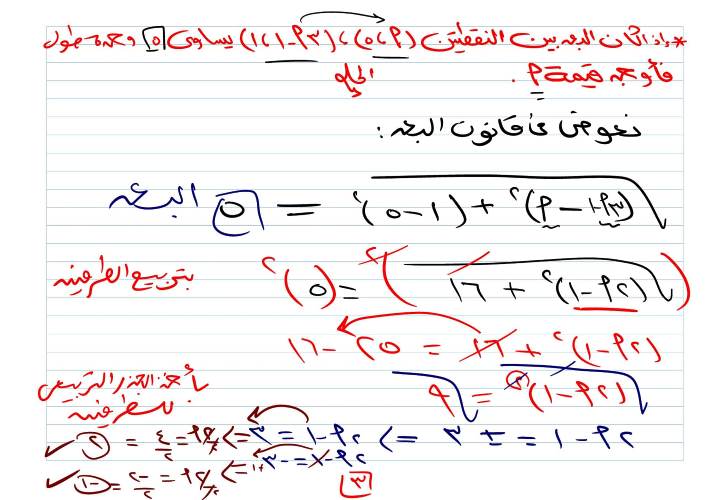 * إذا كان البعد بين النقطتين (م، ٥)، (٣م-١، ١) يساوي ٥ وحدة طول
فأوجد قيمة م .
الحل
نعوض في قانون البعد :
√((٣م-١ - م)٢ + (١-٥)٢) = ٥ البعد
(√((٢م-١)٢ + ١٦))٢ = (٥)٢ بتربيع الطرفين
(٢م-١)٢ + ١٦ = ٢٥ - ١٦
√(٢م-١)٢ = √٩ بأخذ الجذر التربيعي للطرفين
٢م-١ = ± ٣ => ٢م-١ = ٣ => ٢م/٢ = ٤/٢ = ٢ ✓
٢م-١ = -٣ +١ => ٢م/٢ = -٢/٢ = -١ ✓
٣